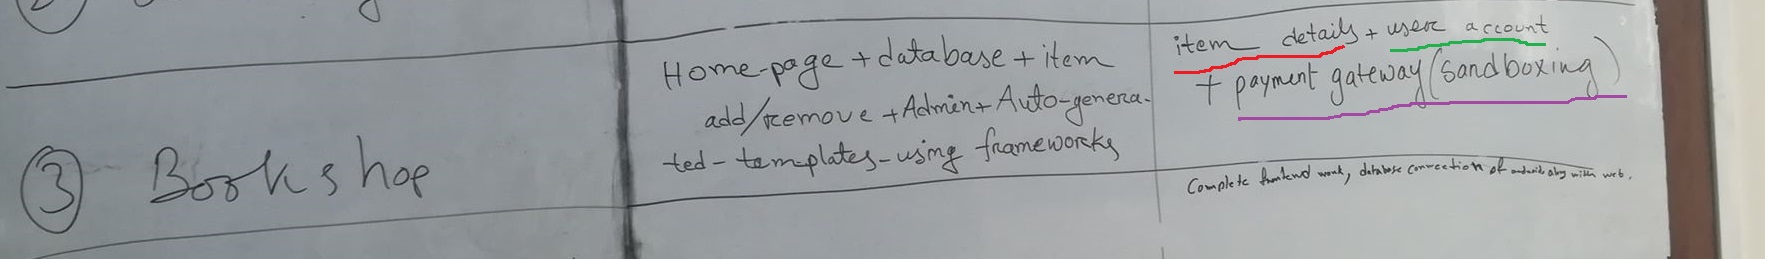 ③ Bookshop
Home-page + database + item
add/remove + Admin + Auto-genera-
ted-templates-using frameworks
item details + user account
+ payment gateway (sandboxing)
Complete frontend work, database connection of along with web.